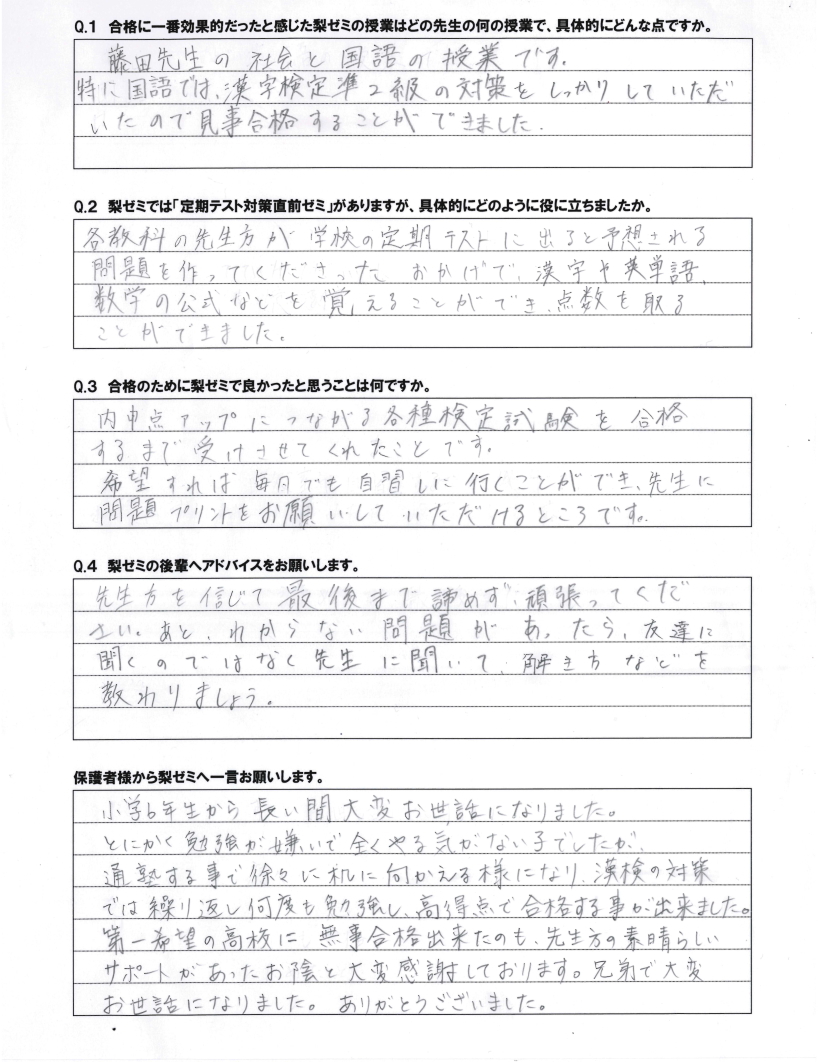 Q.1 合格に一番効果的だったと感じた梨ゼミの授業はどの先生の何の授業で、具体的にどんな点ですか。
藤田先生の社会と国語の授業です。
特に国語では、漢字検定準2級の対策をしっかりしていただ
いたので見事合格することができました.
Q.2 梨ゼミでは「定期テスト対策直前ゼミ」がありますが、具体的にどのように役に立ちましたか。
各教科の先生方が学校の定期テストに出ると予想される
問題を作ってくださったおかげで、漢字や英単語、
数学の公式などを覚えることができ、点数を取る
ことができました。
Q.3 合格のために梨ゼミで良かったと思うことは何ですか。
内申点アップにつながる各種検定試験を合格
するまで受けさせてくれたことです。
希望すれば毎日でも自習しに行くことができ、先生に
問題プリントをお願いしていただけるところです。
Q.4 梨ゼミの後輩へアドバイスをお願いします。
先生方を信じて最後まで諦めず、頑張ってくだ
さい。あと、わからない問題があったら、友達に
聞くのではなく先生に聞いて、解き方などを
教わりましょう。
保護者様から梨ゼミへ一言お願いします。
小学6年生から長い間大変お世話になりました。
とにかく勉強が嫌いで全くやる気がない子でしたが、
通塾する事で徐々に机に向かえる様になり、漢検の対策
では繰り返し何度も勉強し、高得点で合格する事が出来ました。
第一希望の高校に無事合格出来たのも、先生方の素晴らしい
サポートがあったお陰と大変感謝しております。兄弟で大変
お世話になりました。ありがとうございました。